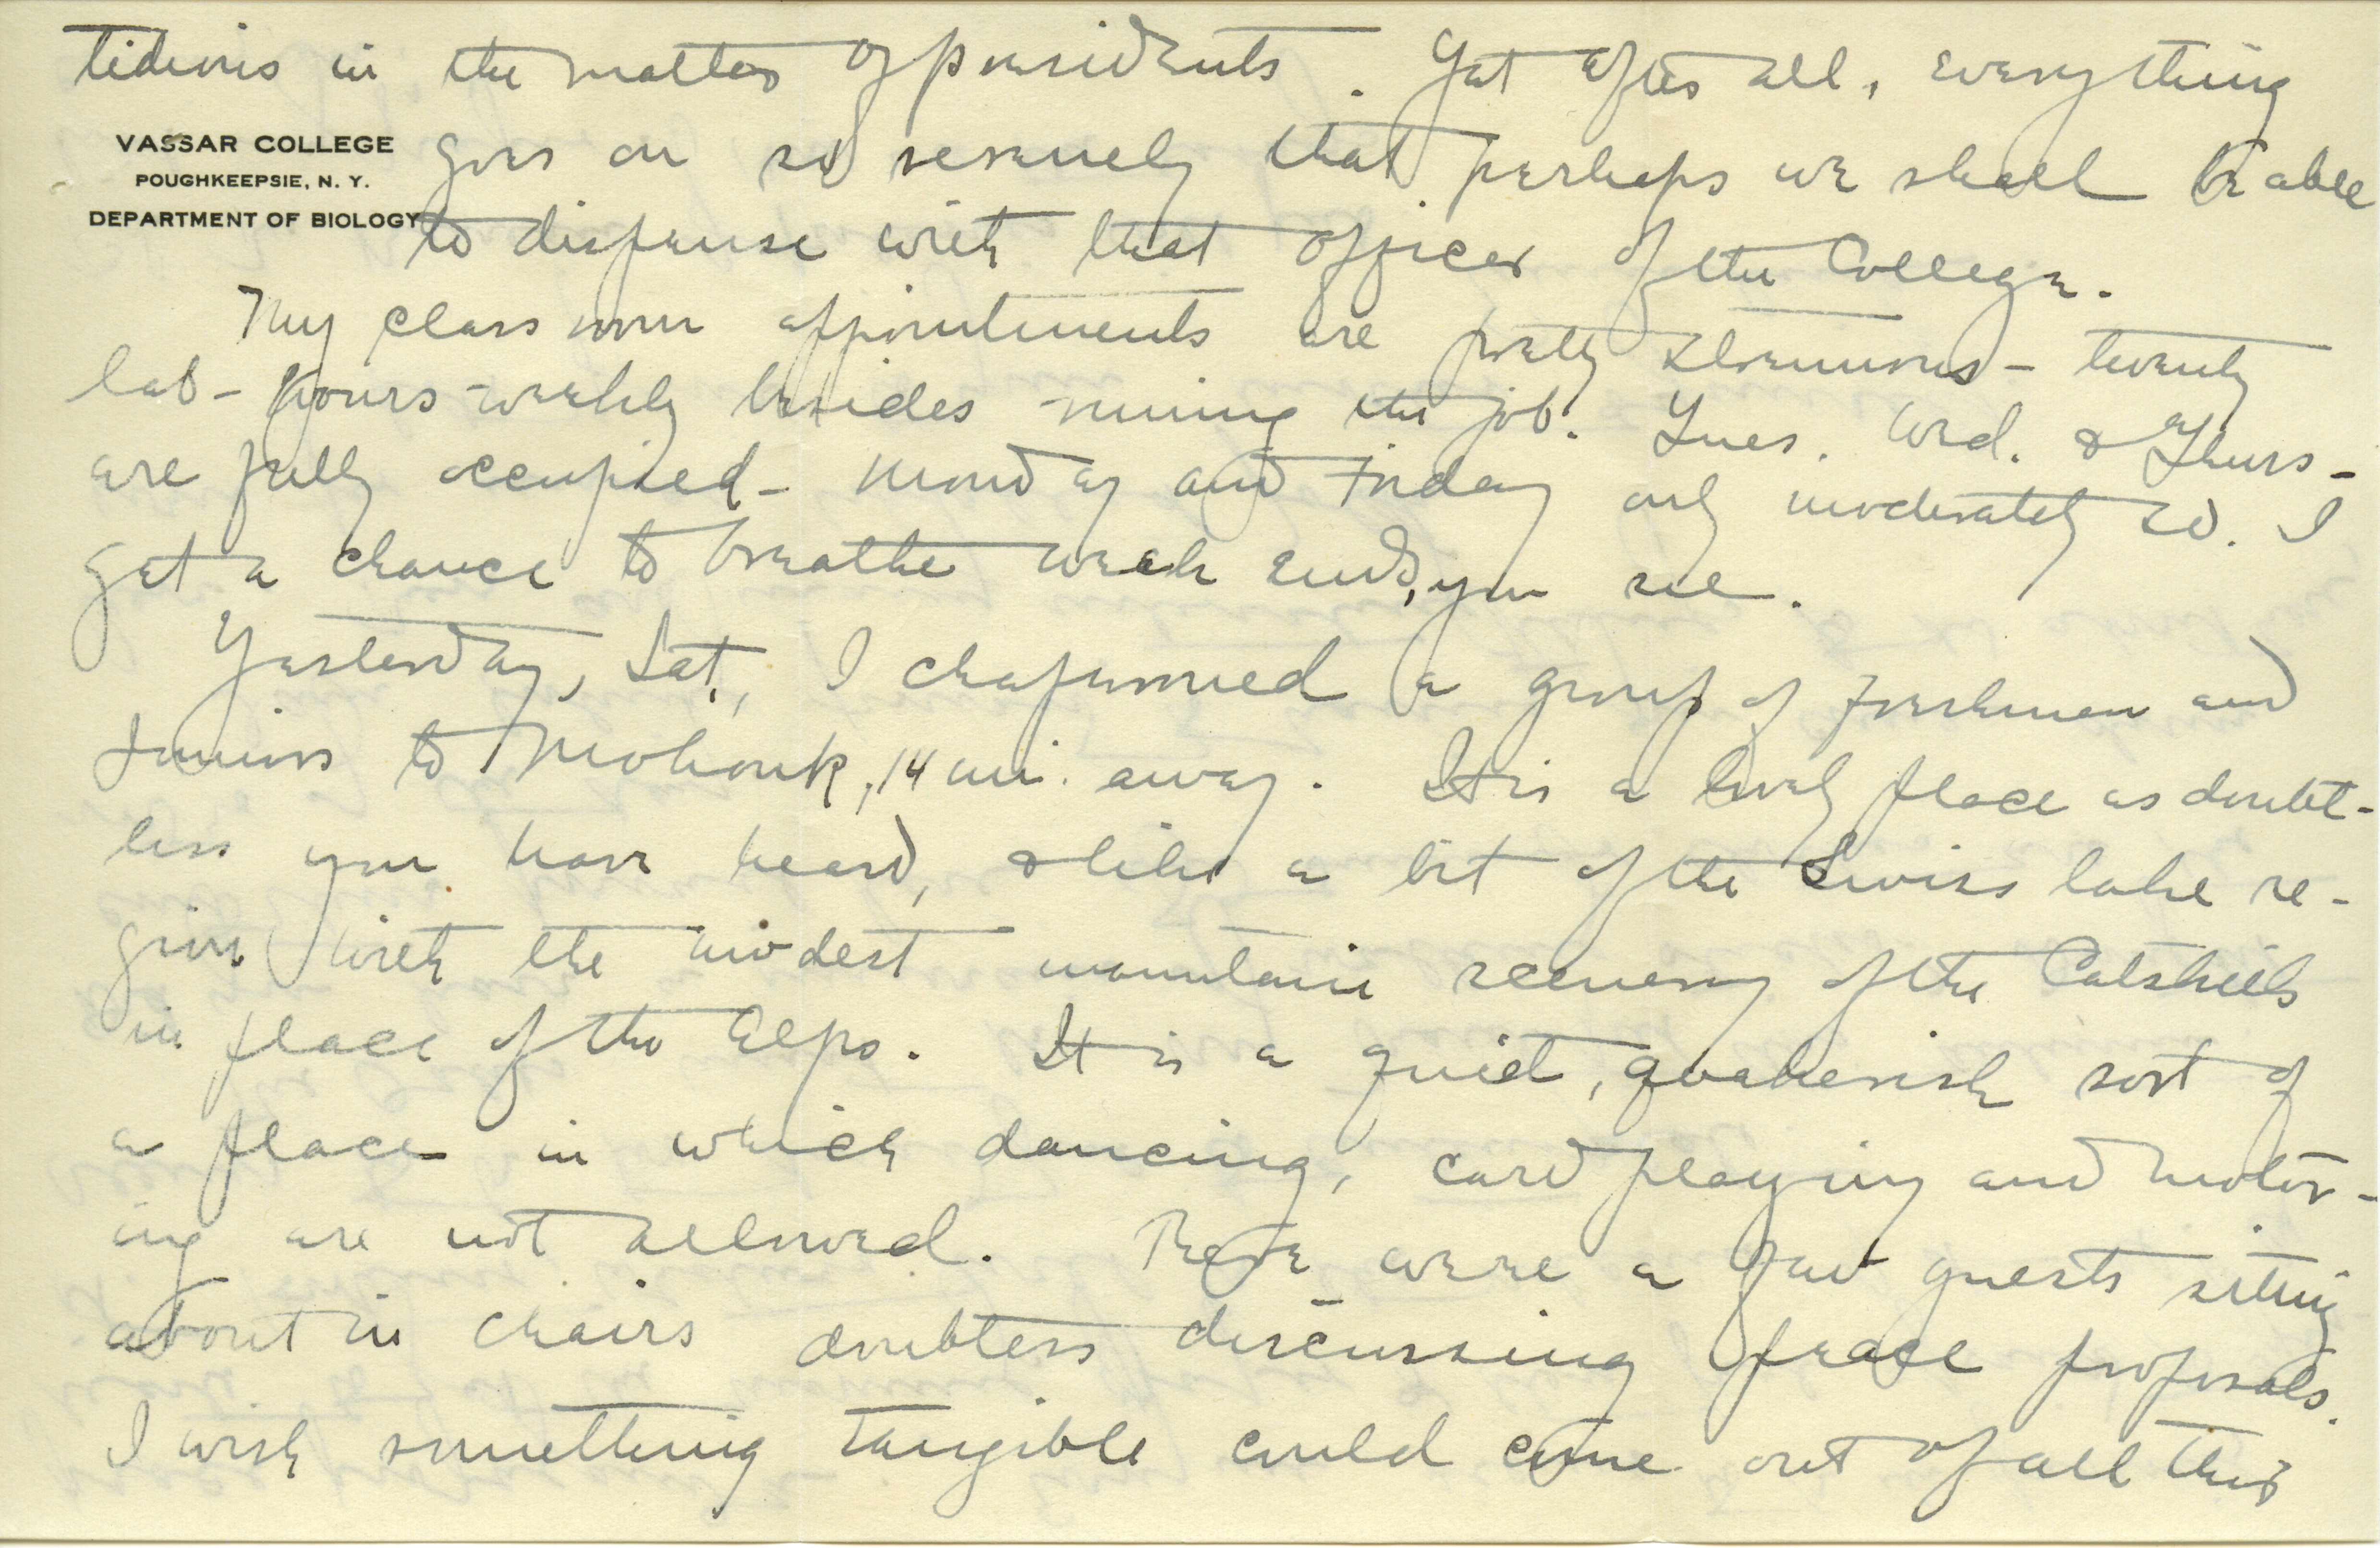 tidious in the matter of presidents. Yet after all, everything
VASSAR COLLEGE
POUGHKEEPSIE, N. Y.
DEPARTMENT OF BIOLOGY
goes on so serenely that perhaps we shall be able
to dispense with that officer of the College.
My class room appointments are pretty strenuous - twenty
lab-hours weekly besides running the job. Tues. Wed. & Thurs-
are fully occupied - Monday and Friday only moderately so. I
get a chance to breathe week ends, you see.
Yesterday, Sat., I chaperoned a group of Freshmen and
Juniors to Mohonk, 14 mi. away. It is a lovely place as doubt-
less you have heard, & like a bit of the Swiss lake re-
gion with the modest mountain scenery of the Catskills
in place of the Alps. It is a quiet, quakerish sort of
a place in which dancing, card playing and motor-
ing are not allowed. There were a few guests sitting
about in chairs doubtless discussing peace proposals.
I wish something tangible could come out of all this